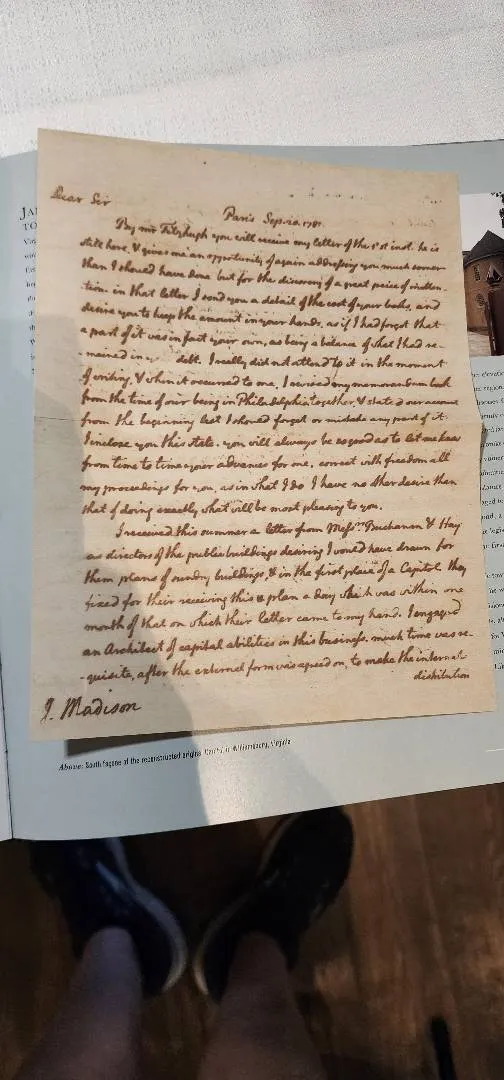 Dear Sir
Paris Sep. 20. 1785.
By mr Fitzhugh you will receive my letter of the 1st inst. he is
still here, & gives me an opportunity of again addressing you much sooner
than I should have done but for the discovery of a great peice of inatten-
tion. in that letter I send you a detail of the cost of your books, and
desire you to keep the amount in your hands, as if I had forgot that
a part of it was in fact your own, as being a balance of what I had re-
-mained in your debt. I really did not attend to it in the moment
of writing, & when it occurred to me, I revised my memorandum book
from the time of our being in Philadelphia together, & stated our account
from the beginning lest I should forget or mistake any part of it.
I inclose you this state. you will always be so good as to let me know
from time to time your advances for me. correct with freedom all
my proceedings for you, as in what I do I have no other desire than
that of doing exactly what will be most pleasing to you.
I received this summer a letter from Messrs. Buchanan & Hay
as directors of the public buildings desiring I would have drawn for
them plans of sundry buildings, & in the first place of a Capitol. they
fixed for their receiving this plan a day which was within one
month of that on which their letter came to my hand. I engaged
an Architect of capital abilities in this business. much time was re-
-quisite, after the external form was agreed on, to make the internal
distribution
J. Madison
Above: South façade of the reconstructed original Capitol in Williamsburg, Virginia